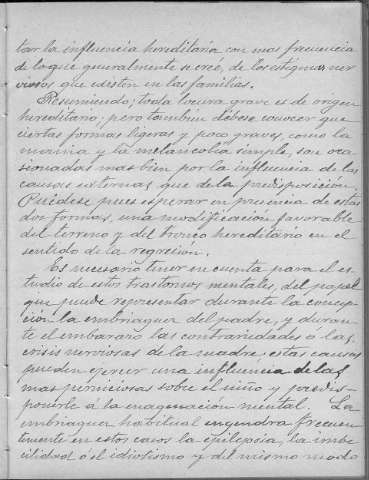 tar la influencia hereditaria con mas frecuencia
de lo que generalmente se creé, de los estigmas ner
viosos que existen en las familias.
Resumiendo; toda locura grave es de origen
hereditario; pero tambien débese conocer que
ciertas formas ligeras y poco graves, como la
mania y la melancolia simple, son oca
sionadas mas bien por la influencia de las
causas externas, que de la predisposición.
Puédese pues esperar en presencia de estas
dos formas, una modificación favorable
del terreno y del tronco hereditario en el
sentido de la regresión.
Es necesario tener en cuenta para el es
tudio de estos trastornos mentales, del papel
que puede representar durante la concep
ción la embriaguez del padre, y duran
te el embarazo las contrariedades ó las
crisis nerviosas de la madre; estas causas
pueden ejercer una influencia de las
mas perniciosas sobre el niño y predis-
ponerle á la enagenación mental. La
embriaguez habitual engendra frecuen
temente en estos casos la epilepsia, la imbe
cilidad ó el idiotismo y del mismo modo